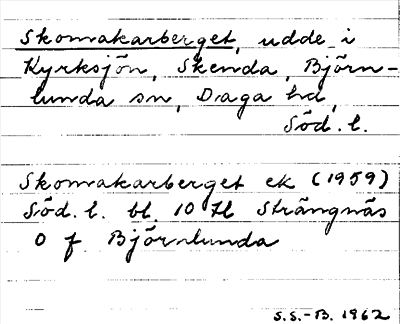 Skomakarberget, udde i
Kyrksjön, Skenda, Björn-
lunda sn, Daga hd,
Söd. l.
Skomakarberget ek (1959)
Söd. l. bl. 10 Hl Strängnäs
O f Björnlunda
S.S.-B. 1962